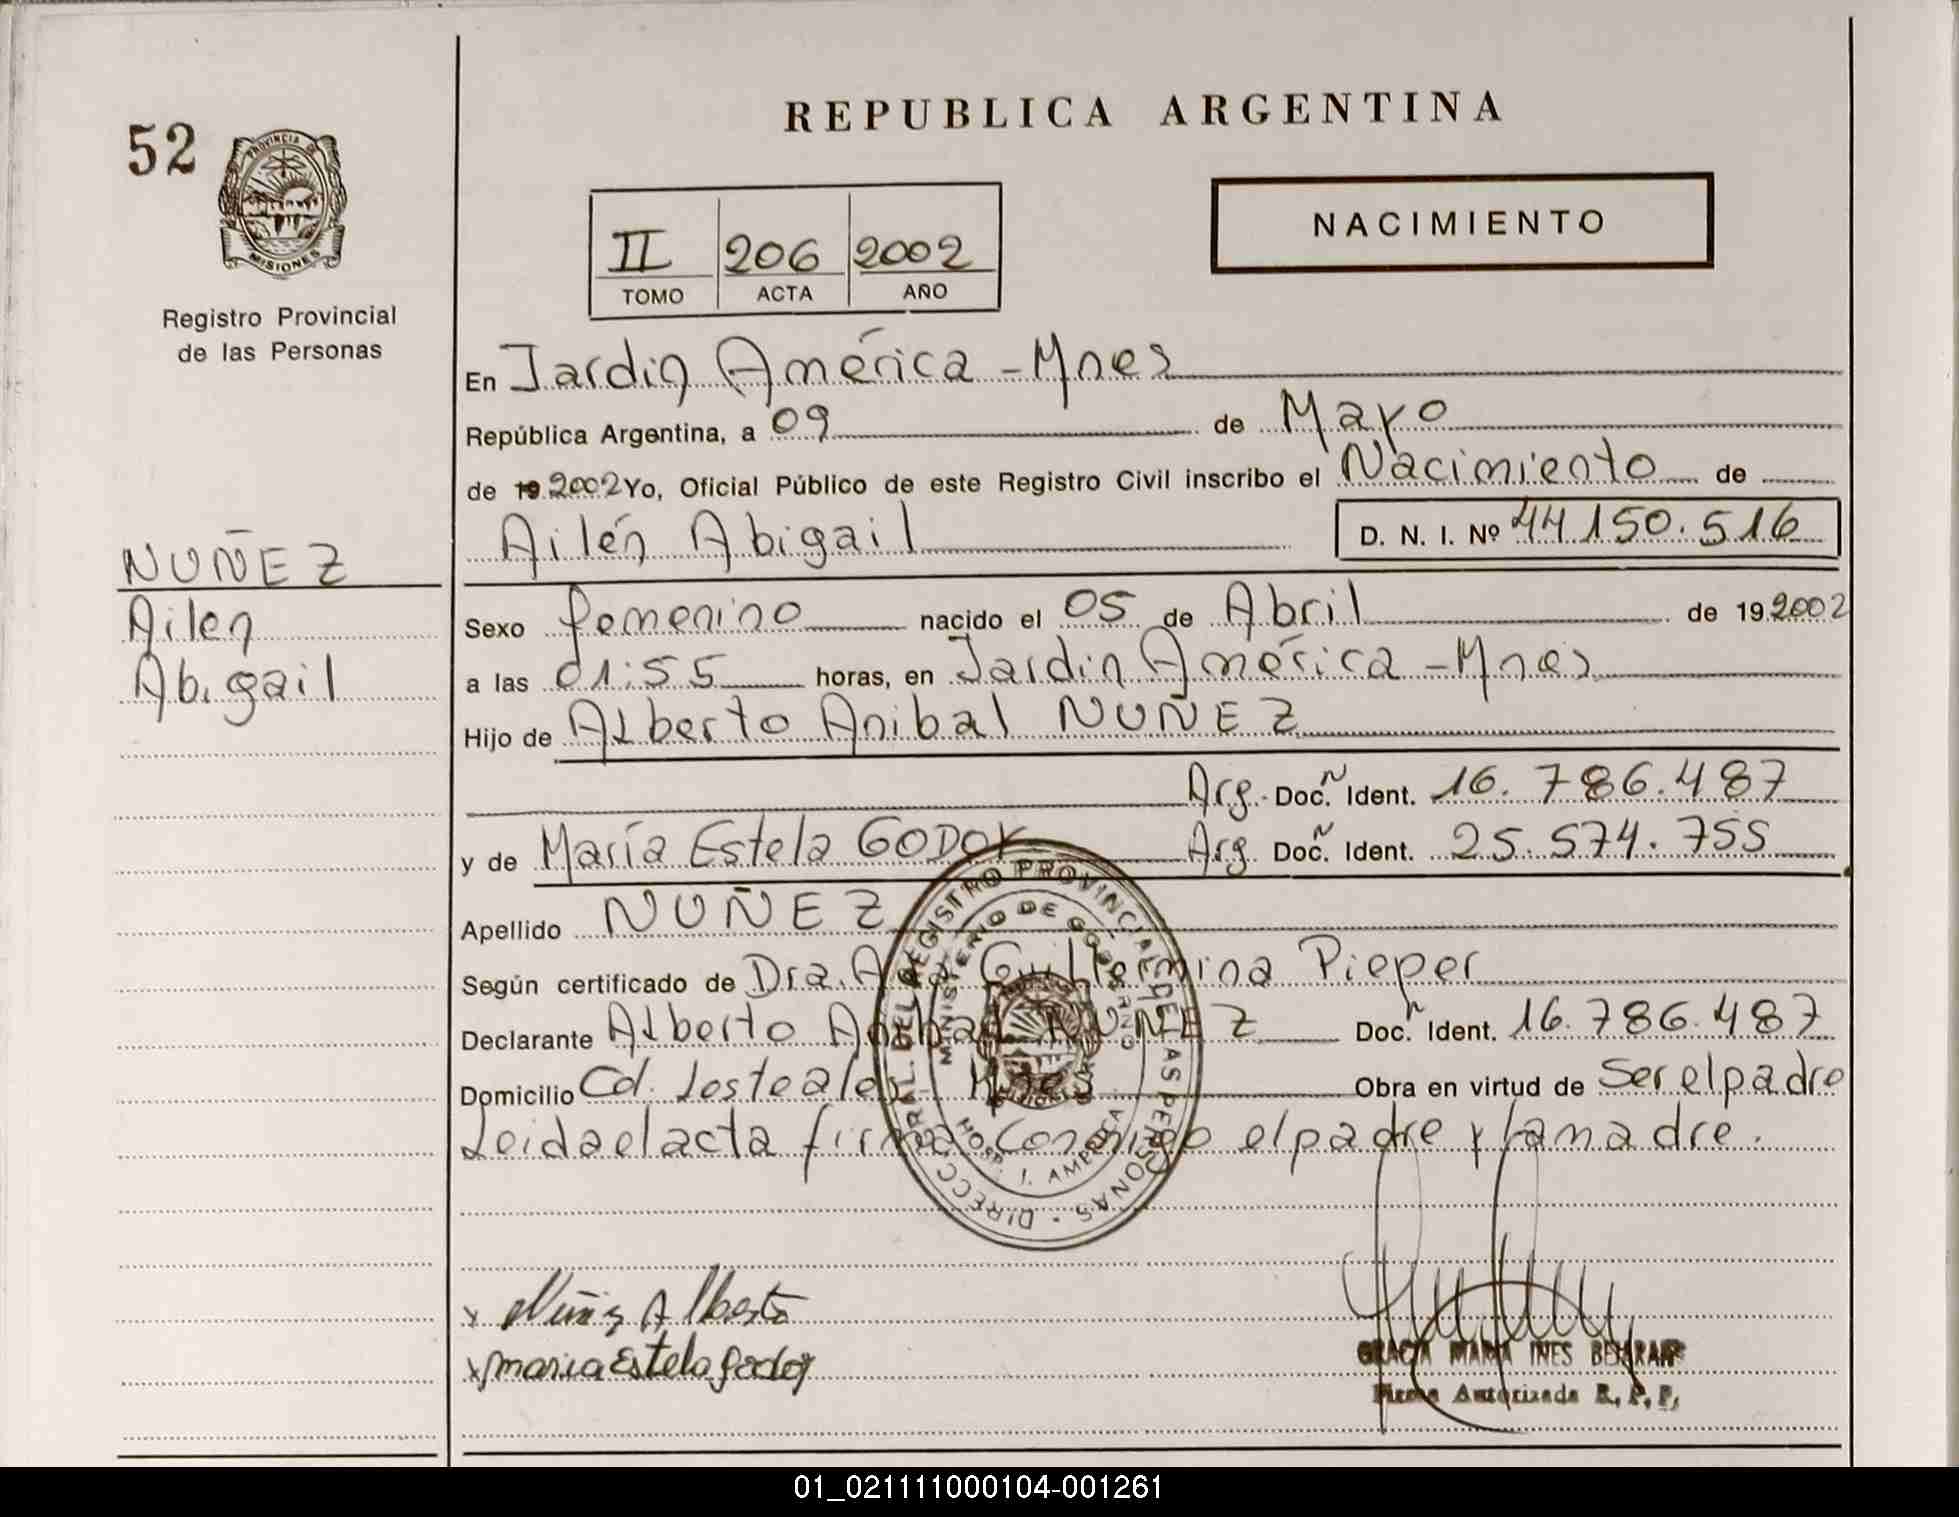 REPUBLICA ARGENTINA
52
PROVINCIA DE MISIONES
Registro Provincial
de las Personas
II 206 2002
TOMO ACTA AÑO
NACIMIENTO
En Jardin América - Mnes
República Argentina, a 09 de Mayo
de 19 2002 Yo, Oficial Público de este Registro Civil inscribo el Nacimiento de
Ailén Abigail D. N. I. Nº 44.150.516
NUÑEZ
Ailen
Abigail
Sexo femenino nacido el 05 de Abril de 19 2002
a las 01:55 horas, en Jardin América - Mnes
Hijo de Alberto Anibal NUÑEZ
Arg. Doc. Ident. 16.786.487
y de María Estela GODOY Arg. Doc. Ident. 25.574.755
Apellido NUÑEZ
Según certificado de Dra. Guillermina Pieper
Declarante Alberto Anibal NUÑEZ Doc. Ident. 16.786.487
Domicilio Cd. Mnes Obra en virtud de Ser el padre
Leida el acta firma conmigo el padre y la madre.
DIRECC. GRAL. DEL REGISTRO PROVINCIAL DE LAS PERSONAS
MINISTERIO DE GOBIERNO
HOSP. J. AMERICA
x Nuñez Alberto
x maria Estela godoy
GRACIA MARIA INES
Firma Autorizada R. P. P.
01_021111000104-001261